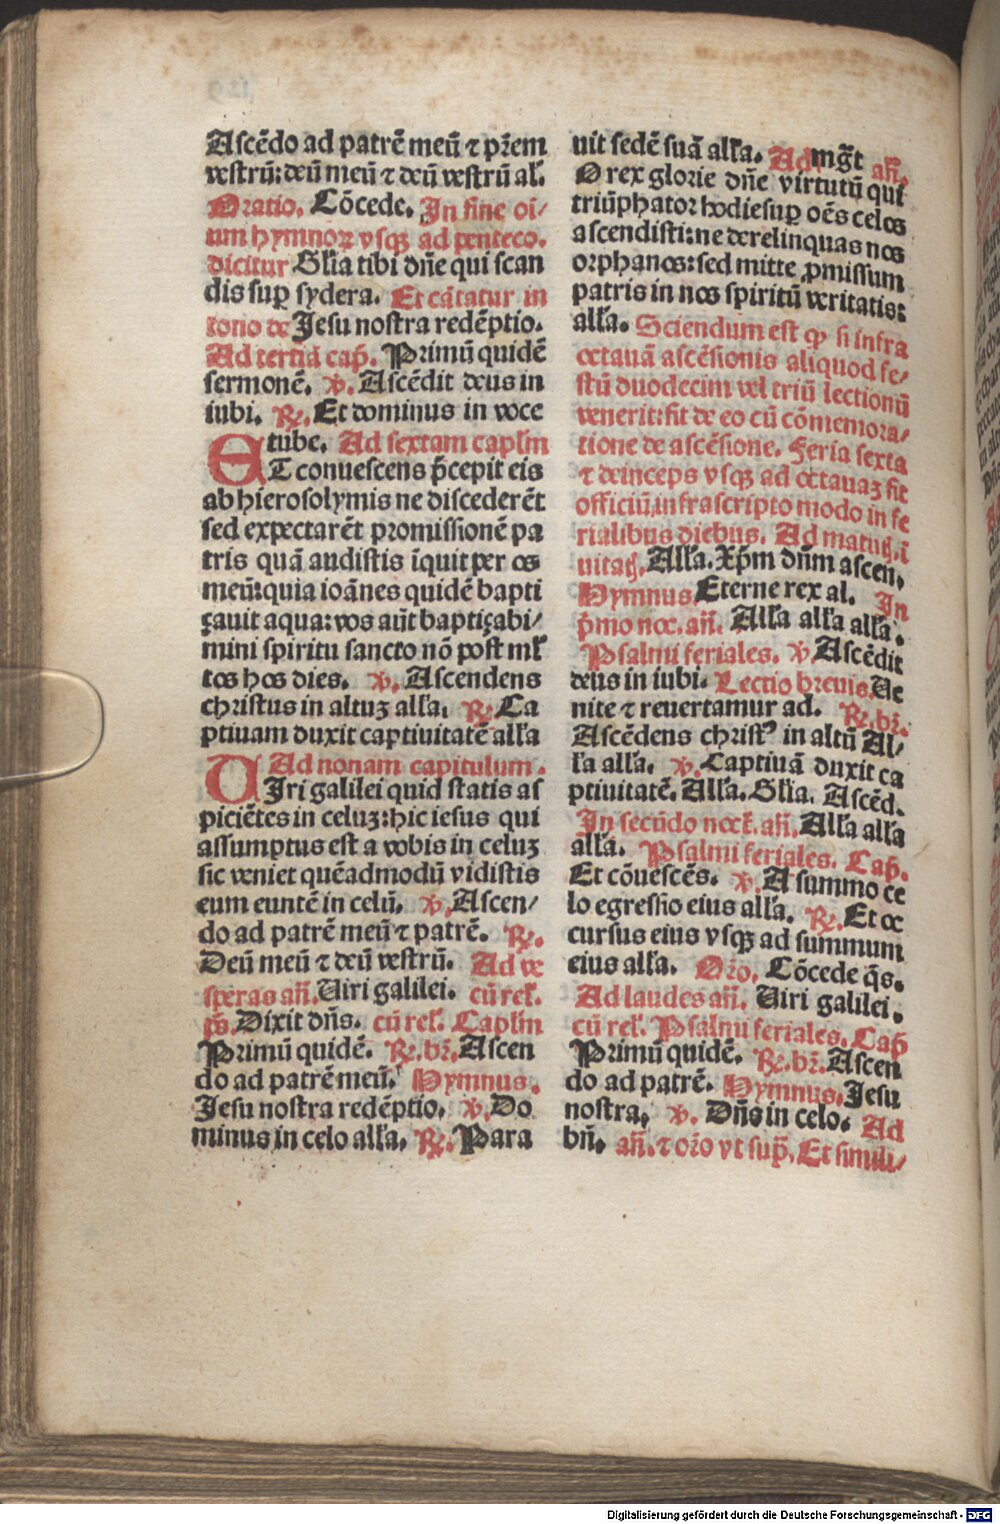 Ascēdo ad patrē meū ⁊ pr̄em
vestrū: deū meū ⁊ deū vestrū al̄.
Oratio. Cōcede. In fine oī/
um hymnoꝝ vsqꝫ ad penteco.
dicitur Gl̄ia tibi dn̄e qui scan
dis suꝑ sydera. Et cātatur in
tono de Jesu nostra redēptio.
Ad tertiā cap̄. Primū quidē
sermonē. ℣. Ascēdit deus in
iubi. ℟. Et dominus in voce
tube. Ad sextam capl̄m
ET conuescens p̄cepit eis
ab hierosolymis ne discederēt
sed expectarēt promissionē pa
tris quā audistis īquit per os
meū: quia ioānes quidē bapti
çauit aqua: vos aūt baptiçabi/
mini spiritu sancto nō post ml̄
tos hos dies. ℣. Ascendens
christus in altuꝫ all̄a. ℟. Ca
ptiuam duxit captiuitatē all̄a
Ad nonam capitulum.
VIri galilei quid statis as
piciētes in celuꝫ: hic iesus qui
assumptus est a vobis in celuꝫ
sic veniet quēadmodū vidistis
eum euntē in celū. ℣. Ascen/
do ad patrē meū ⁊ patrē. ℟.
Deū meū ⁊ deū vestrū. Ad ve
speras an̄. Uiri galilei. cū rel̄.
ps̄. Dixit dn̄s. cū rel̄. Capl̄m
Primū quidē. ℟. br̄. Ascen
do ad patrē meū. Hymnus.
Jesu nostra redēptio. ℣. Do
minus in celo all̄a. ℟. Para
uit sedē suā all̄a. Ad mgt̄ an̄.
O rex glorie dn̄e virtutū qui
triūphator hodie suꝑ oēs celos
ascendisti: ne derelinquas nos
orphanos: sed mitte ꝓmissum
patris in nos spiritū veritatis:
all̄a. Sciendum est ꝙ si infra
octauā ascēsionis aliquod fe/
stū duodecim vel triū lectionū
venerit: fit de eo cū cōmemora/
tione de ascēsione. Feria sexta
⁊ deinceps vsqꝫ ad octauaꝫ fit
officiū infrascripto modo in fe
rialibus diebus. Ad matuꝭ. ī
uitaꝭ. All̄a. Xp̄m dn̄m ascen.
Hymnus. Eterne rex al. In
p̄mo noc. an̄. All̄a all̄a all̄a.
Psalmi feriales. ℣. Ascēdit
deus in iubi. Lectio breuis. Ue
nite ⁊ reuertamur ad. ℟. br̄.
Ascēdens christꝰ in altū Al/
l̄a all̄a. ℣. Captiuā duxit ca
ptiuitatē. All̄a. Gl̄ia. Ascēd.
In secūdo noct̄. an̄. All̄a all̄a
all̄a. Psalmi feriales. Cap̄.
Et cōuescēs. ℣. A summo ce
lo egressio eius all̄a. ℟. Et oc
cursus eius vsqꝫ ad summum
eius all̄a. Or̄o. Cōcede q̄s.
Ad laudes an̄. Uiri galilei.
cū rel̄. Psalmi feriales. Cap̄
Primū quidē. ℟. br̄. Ascen
do ad patrē. Hymnus. Jesu
nostra. ℣. Dn̄s in celo. Ad
bn̄. an̄. ⁊ or̄o vt sup̄. Et simili/
Digitalisierung gefördert durch die Deutsche Forschungsgemeinschaft - DFG